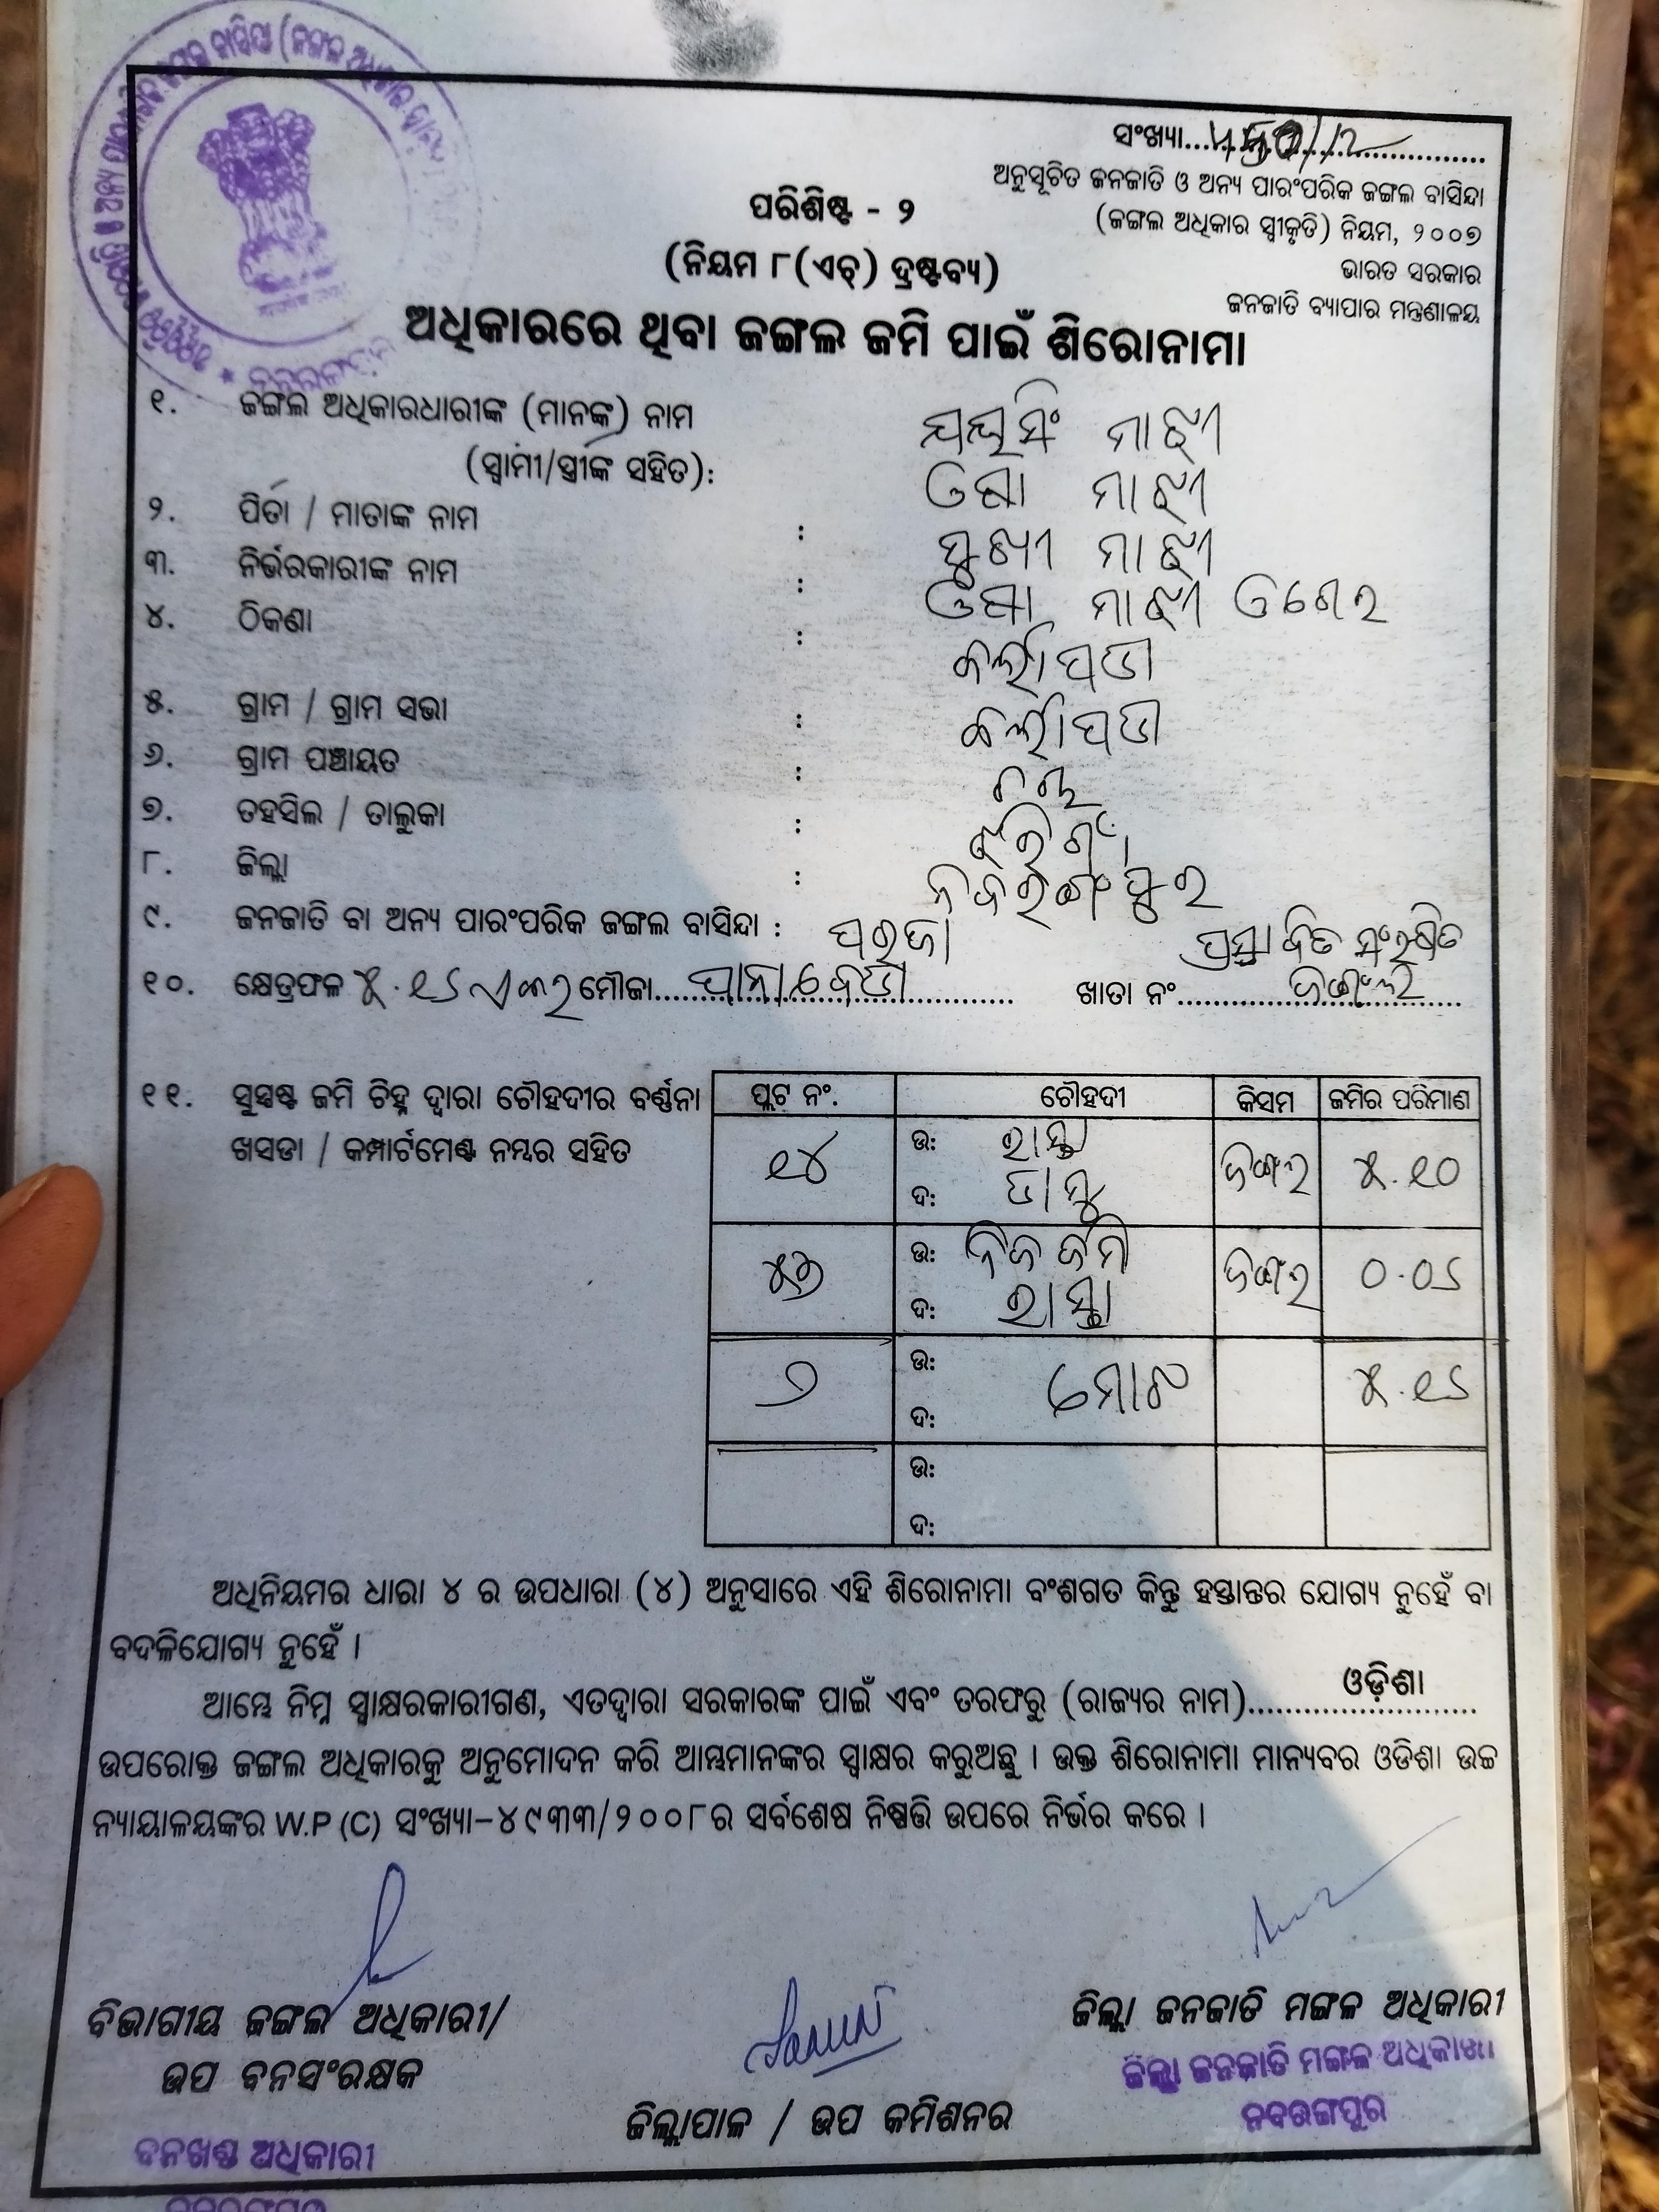 ସଂଖ୍ୟା
ଅନୁସୂଚିତ ଜନଜାତି ଓ ଅନ୍ୟ ପାରଂପରିକ ଜଙ୍ଗଲ ବାସିନ୍ଦା
(ଜଙ୍ଗଲ ଅଧିକାର ସ୍ୱୀକୃତି) ନିୟମ, ୨୦୦୭
ଭାରତ ସରକାର
ଜନଜାତି ବ୍ୟାପାର ମନ୍ତ୍ରଣାଳୟ
ପରିଶିଷ୍ଟ - ୨
(ନିୟମ ୮(ଏଚ୍) ଦ୍ରଷ୍ଟବ୍ୟ)
ଅଧିକାରରେ ଥିବା ଜଙ୍ଗଲ ଜମି ପାଇଁ ଶିରୋନାମା
୧. ଜଙ୍ଗଲ ଅଧିକାରଧାରୀଙ୍କ (ମାନଙ୍କ) ନାମ ମାଝୀ
(ସ୍ୱାମୀ/ସ୍ତ୍ରୀଙ୍କ ସହିତ): ମାଝୀ
୨. ପିତା / ମାତାଙ୍କ ନାମ : ମାଝୀ
୩. ନିର୍ଭରକାରୀଙ୍କ ନାମ : ମାଝୀ
୪. ଠିକଣା :
୫. ଗ୍ରାମ / ଗ୍ରାମ ସଭା :
୬. ଗ୍ରାମ ପଞ୍ଚାୟତ :
୭. ତହସିଲ / ତାଲୁକା : ଝରିଗାଁ
୮. ଜିଲ୍ଲା : ନବରଙ୍ଗପୁର
୯. ଜନଜାତି ବା ଅନ୍ୟ ପାରଂପରିକ ଜଙ୍ଗଲ ବାସିନ୍ଦା : ପରଜା ପ୍ରସ୍ତାବିତ ସଂରକ୍ଷିତ
୧୦. କ୍ଷେତ୍ରଫଳ ୫.୧୫ ଏକର ମୌଜା ଖାତା ନଂ ଜଙ୍ଗଲ
୧୧. ସୁସ୍ପଷ୍ଟ ଜମି ଚିହ୍ନ ଦ୍ୱାରା ଚୌହଦୀର ବର୍ଣ୍ଣନା
ଖସଡା / କମ୍ପାର୍ଟମେଣ୍ଟ ନମ୍ବର ସହିତ
ପ୍ଲଟ ନଂ. ଚୌହଦୀ କିସମ ଜମିର ପରିମାଣ
୧୪ ଉ: ରାସ୍ତା ଜଙ୍ଗଲ ୫.୧୦
ଦ: ଡାମୁ
୫୬ ଉ: ନିଜ ଜମି ଜଙ୍ଗଲ ୦.୦୫
ଦ: ରାସ୍ତା
୨ ଉ: ମୋଟ ୫.୧୫
ଦ:
ଉ:
ଦ:
ଅଧିନିୟମର ଧାରା ୪ ର ଉପଧାରା (୪) ଅନୁସାରେ ଏହି ଶିରୋନାମା ବଂଶଗତ କିନ୍ତୁ ହସ୍ତାନ୍ତର ଯୋଗ୍ୟ ନୁହେଁ ବା
ବଦଳିଯୋଗ୍ୟ ନୁହେଁ ।
ଆମ୍ଭେ ନିମ୍ନ ସ୍ୱାକ୍ଷରକାରୀଗଣ, ଏତଦ୍ୱାରା ସରକାରଙ୍କ ପାଇଁ ଏବଂ ତରଫରୁ (ରାଜ୍ୟର ନାମ) ଓଡ଼ିଶା
ଉପରୋକ୍ତ ଜଙ୍ଗଲ ଅଧିକାରକୁ ଅନୁମୋଦନ କରି ଆମ୍ଭମାନଙ୍କର ସ୍ୱାକ୍ଷର କରୁଅଛୁ । ଉକ୍ତ ଶିରୋନାମା ମାନ୍ୟବର ଓଡିଶା ଉଚ୍ଚ
ନ୍ୟାୟାଳୟଙ୍କର W.P (C) ସଂଖ୍ୟା-୪୯୩୩/୨୦୦୮ର ସର୍ବଶେଷ ନିଷ୍ପତ୍ତି ଉପରେ ନିର୍ଭର କରେ ।
ବିଭାଗୀୟ ଜଙ୍ଗଲ ଅଧିକାରୀ/
ଉପ ବନସଂରକ୍ଷକ
ବନଖଣ୍ଡ ଅଧିକାରୀ
ଜିଲ୍ଲାପାଳ / ଉପ କମିଶନର
ଜିଲ୍ଲା ଜନଜାତି ମଙ୍ଗଳ ଅଧିକାରୀ
ଜିଲ୍ଲା ଜନଜାତି ମଙ୍ଗଳ ଅଧିକାରୀ
ନବରଙ୍ଗପୁର